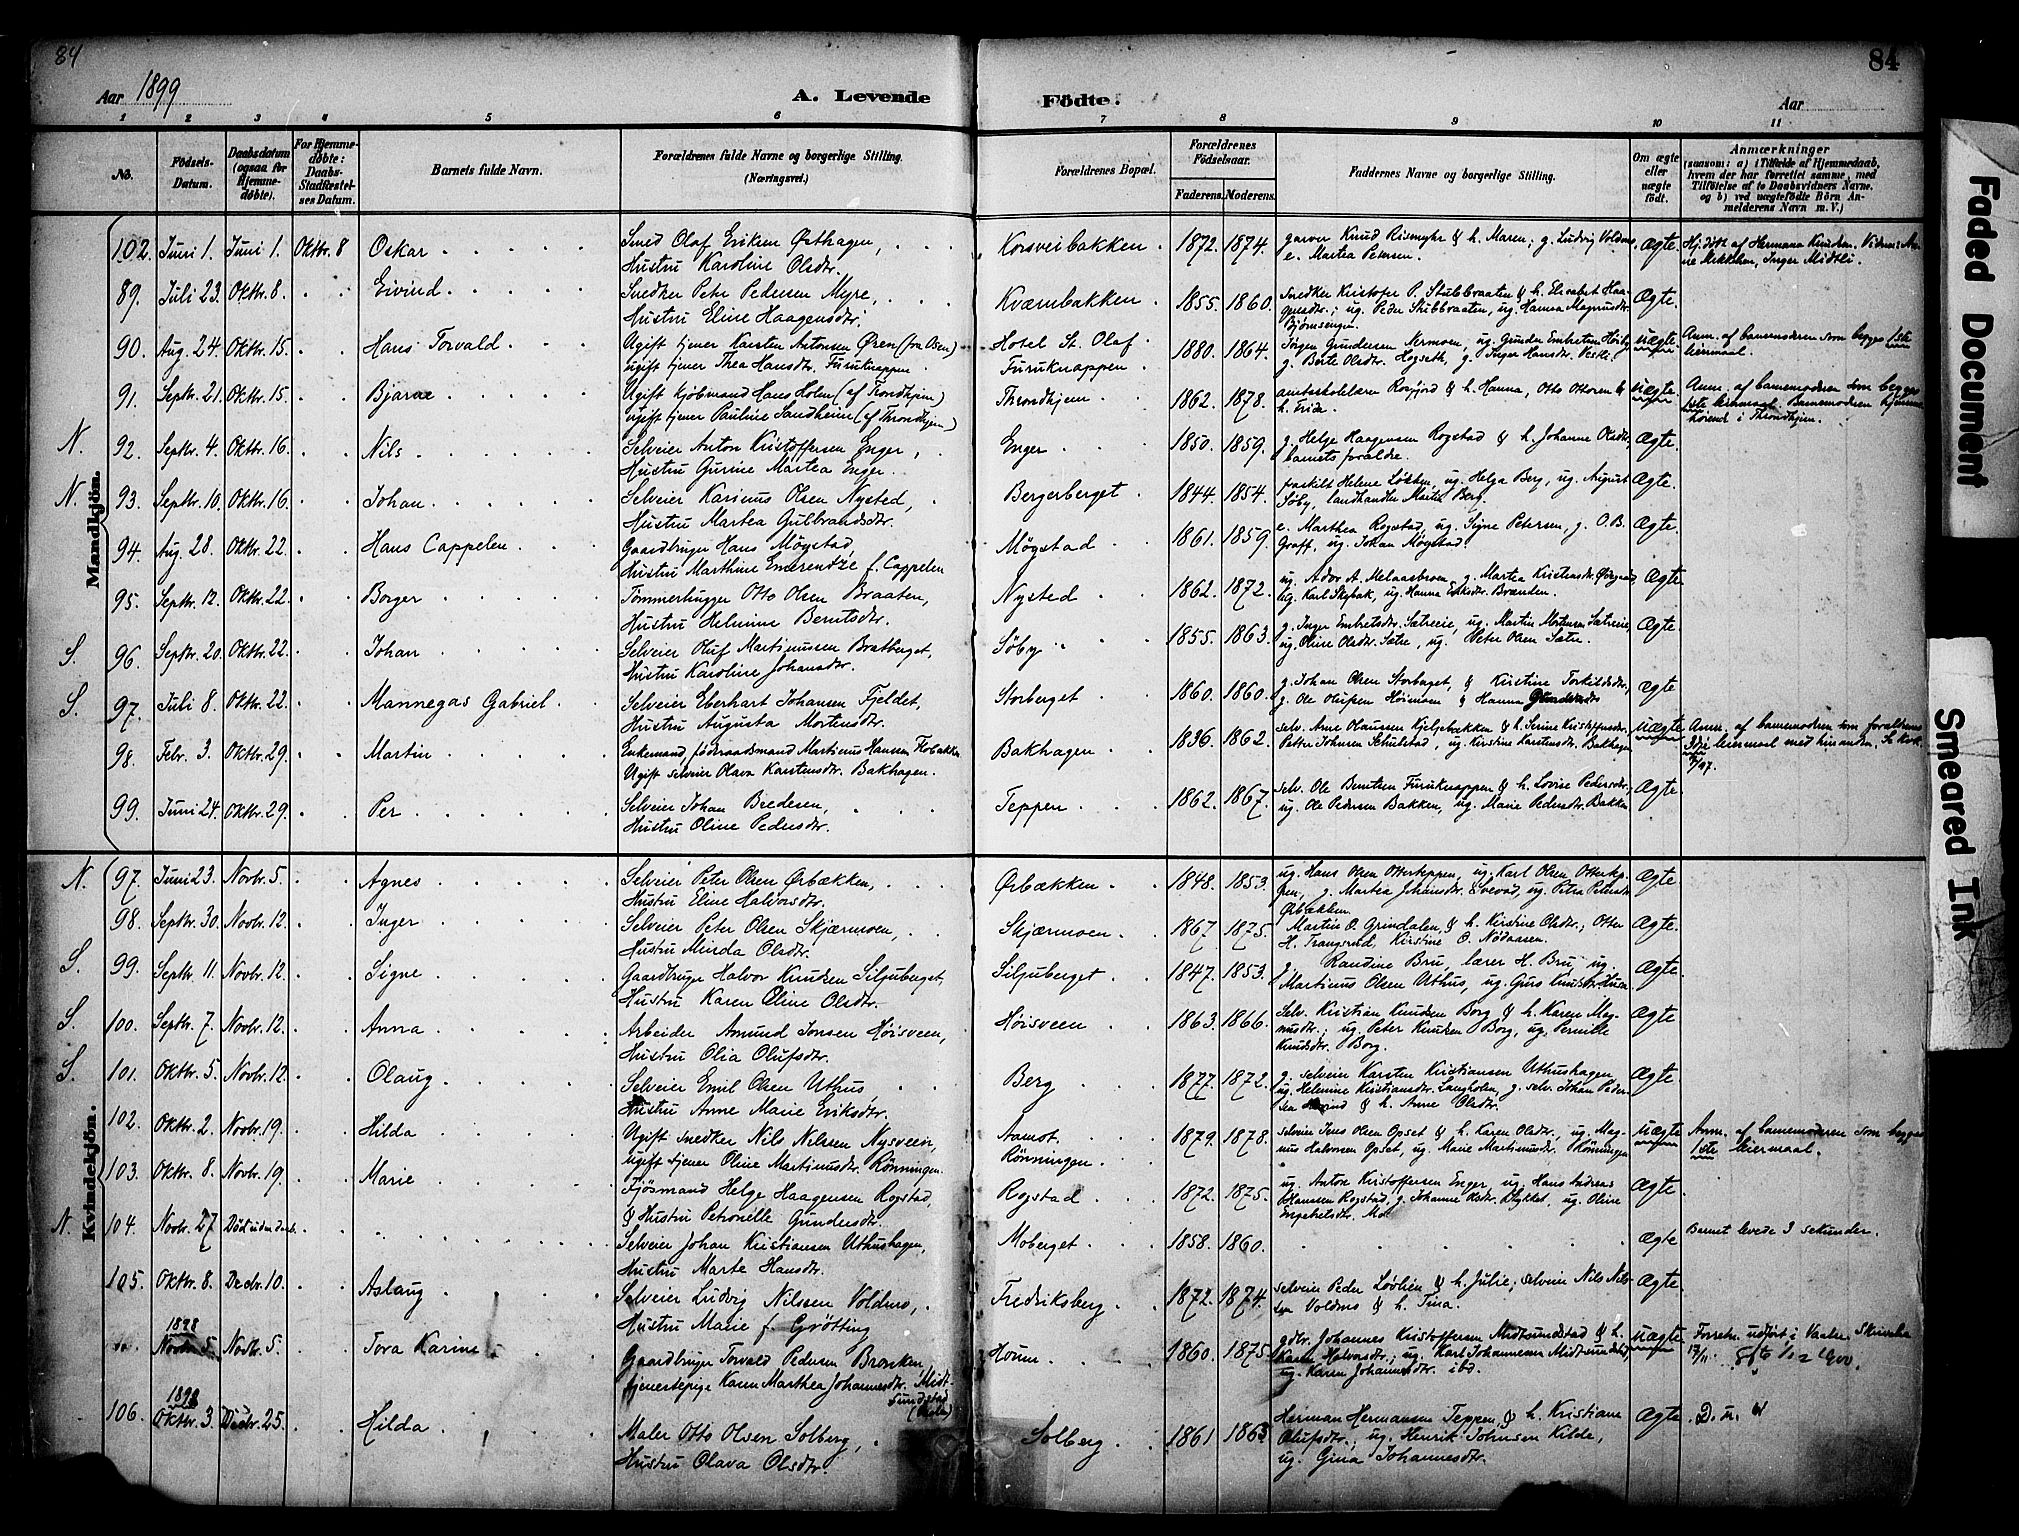 84
84
Aar 1899
A. Levende
Födte.
Aar
1 2 3 4 5 6 7 8 9 10 11
No.
Födsels-Datum.
Daabsdatum (ogsaa for Hjemmedøbte).
For Hjemmedøbte: Daabs-Stadfæstelses Datum.
Barnets fulde Navn.
Forældrenes fulde Navne og borgerlige Stilling. (Næringsvei.)
Forældrenes Bopæl.
Forældrenes Födselsaar.
Faderens. Moderens.
Faddernes Navne og borgerlige Stilling.
Om ægte eller uægte født.
Anmærkninger
(saasom: a) i Tilfælde af Hjemmedaab, hvem der har forrettet samme, med Tilföielse af to Daabsvidners Navne. og b) ved uægtefödte Börn Anmelderens Navn m. V.)
Mandkjön.
102. Juni 1. Juni 1. Oktbr. 8 Oskar Smed Olaf Eriksen Østhagen, Korsveibakken 1872. 1874. garver Knud Rismyhr & h. Maren; g. Ludvig Voldmo Ægte. Hj.døbt af Hermana Knudsen.
Hustru Karoline Olsdtr. e. Martea Petersen. Mikkelsen, Inger Midtli.
89. Juli 23. Oktbr. 8. Eivind Snedker Petr Pedersen Myre, Kværnbakken 1855. 1860. Snedker Kristofer P. Stubbraaten & h. Elisabet Haagensdtr.; ug. Peder Stubbraaten, ug. Hansea Magnusdtr. Bjørnsengen. Ægte
Hustru Eline Haagensdtr.
90. Aug. 24. Oktbr. 15. Hans Torvald Ugift tjener Karsten Antonsen Øren (fra Osen) Hotel St. Olaf 1880. 1864. Jörgen Gundersen Nermoen, ug. Gunda Embretsen Høiby uægte Anm. af barnemodren som begges 1ste leiermaal.
ugift tjener Thea Hansdtr. Furuknappen. Furuknappen g. Berte Olsdtr. Hogseth, g. Inger Hansdtr. Vestli
91. Septbr. 21. Oktbr. 15. Bjarne Ugift Kjøbmand Hans Holm (af Trondhjem) Throndhjem 1862. 1878. amtsskolelærer & h. Hanna, Otto Ottoren & h. Erida. uægte Anm. af barnemodren som begges 1ste leiermaal. Barnemodren hjemmehørend i Throndhjem.
ugift tjener Pauline Sandheim (af Throndhjem)
N. 92. Septbr. 4. Oktbr. 16. Nils Selveier Anton Kristoffersen Enger, Enger 1850. 1859. g. Helge Haagensen Rogstad & h. Johanne Olsdtr. Ægte.
Hustru Gurine Martea Enger. barnets forældre.
N. 93. Septbr. 10. Oktbr. 16 Johan Selveier Karinus Olsen Nysted, Bergerberget 1844. 1854. fraskilt Helene Løkken, ug. Helga Berg, ug. August Søby, landhandler Martin Berg. Ægte.
Hustru Martea Gulbrandsdtr.
94. Aug. 28. Oktbr. 22. Hans Cappelen Gaardbruger Hans Møystad, Møystad 1861. 1859. e. Marthea Rogstad, ug. Signe Petersen, g. O. B. Graff, ug. Johan Møystad. Ægte
Hustru Marthine Emerendze f. Cappelen
95. Septbr. 12. Oktbr. 22. Borger Tømmerhugger Otto Olsen Braaten, Nysted 1862. 1872. ug. Ador A. Melaasbroen, g. Martea Kristensdtr. Ægte.
Hustru Helmine Berntsdtr. ug. Karl Skybak, ug. Hanna Brænden.
S. 96. Septbr. 20. Oktbr. 22. Johan Selveier Oluf Martinusen Bratberget, Søby 1855. 1863. g. Inger Embretsdtr. Sætreeie, ug. Martin Mortensen Sætreeie, Ægte
Hustru Karoline Johansdtr. ug. Oline Olsdtr. Sætre, ug. Peter Olsen Sætre.
S. 97. Juli 8. Oktbr. 22. Mannegas Gabriel Selveier Eberhart Johansen Fjeldet, Storberget 1860. 1860. g. Johan Olsen Storberget, & Kristine Torkildsdtr.; Ægte
Hustru Augusta Mortensdtr. g. Ole Olufsen Høimoen & Hanna
98. Febr. 3. Oktbr. 29. Martin Enkemand, føderaadsmand Martinus Hansen Flobakken Bakhagen 1836. 1862. selv. Arne Olaussen Kjeljebekken & h. Serine Kristoffersdtr. uægte Anm. af barnemodren som forældrens leiermaal med hinanden.
Ugift selveier Olava Karstensdtr. Bakhagen. Petter Johnsen Schulstad, ug. Kirstine Karstensdtr. Bakhagen
99. Juni 24. Oktbr. 29. Per Selveier Johan Bredesen, Teppen 1862. 1867. selv. Ole Berntsen Furuknappen & h. Lovise Pedersdtr., Ægte.
Hustru Oline Pedersdtr. ug. Ole Pedersen Bakken, ug. Marie Pedersdtr. Bakken
Kvindekjön.
N. 97. Juni 23. Novbr. 5. Agnes Selveier Peter Olsen Ørbækken, Ørbækken 1848. 1853. ug. Hans Olsen Otterteppen, ug. Karl Olsen Otterteppen, g. Martea Johansdtr. ug. Petra Petersdtr. Ørbækken. Ægte
Hustru Eline Halvorsdtr.
98. Septbr. 30. Novbr. 12. Inger Selveier Peter Olsen Skjærmoen, Skjærmoen 1867. 1875. Martin O. Grindalen, & h. Kirstine Olsdtr.; Otter H. Trangsrud, Kirstine O. Nödaasen. Ægte.
Hustru Minda Olsdtr.
S. 99. Septbr. 11. Novbr. 12. Signe Gaardbruger Halvor Knudsen Siljuberget, Siljuberget 1847. 1853. g. Randine Bru, lærer H. Bru, ug. Martinus Olsen Uthus, ug. Guro Ægte.
Hustru Karen Oline Olsdtr.
S. 100. Septbr. 7 Novbr. 12. Anna Arbeider Amund Jonsen Høisveen, Høisveen 1863. 1866. Selv. Kristian Knudsen Borg & h. Karen Magnusdtr.; ug. Peter Knudsen Borg, ug. Pernille Knudsdtr. Borg. Ægte
Hustru Olia Olufsdtr.
S. 101. Oktbr. 5. Novbr. 12. Olaug Selveier Emil Olsen Uthus Berg 1877. 1872. g. selveier Karsten Kristiansen Uthushagen, ug. Helmine Kristiansdtr. Langholen, g. selv. Johan Pedersen & h. Anne Olsdtr. Ægte
Hustru Anne Marie Eriksdtr.
102. Oktbr. 2. Novbr. 19. Hilda Ugift snedker Nils Nilsen Nysveen, Aamot. 1879. 1878. selveier Jens Olsen Opset & h. Karen Olsdtr., ug. Magnus Halvorsen Opset, ug. Marie Martinusdtr. Rönningen uægte Anm. af barnemodren som begges 1ste leiermaal.
ugift tjener Oline Martinusdtr. Rönningen. Rönningen
103. Oktbr. 8. Novbr. 19. Marie Fjösmand Helge Haagensen Rogstad, Rogstad 1872. 1875. ug. Anton Kristoffersen Enger, ug. Hans Andreas Hansen Rogstad, g. Johanne Olsdtr. Stykket, ug. Oline Engebretsdtr. Mo. Ægte
& Hustru Petronelle Gundersdtr.
N. 104. Novbr. 27 Død uden daab. Selveier Johan Kristiansen Uthushagen, Moberget 1858. 1860. Ægte Barnet levede 3 sekunder.
Hustru Marte Hansdtr.
105. Oktbr. 8. Decbr. 10. Aslaug Selveier Ludvig Nilssen Voldmo, Fredriksberg 1872. 1874. selveier Peder Løvlien & h. Julie; selveier Nils Nilssen Voldmo & h. Tina. Ægte.
Hustru Marie f. Grötting
1898 Novbr. 5. Novbr. 5. Tora Karine Gaardbruger Torvald Pedersen Bronken, Hovin 1860. 1875. gdbr. Johannes Kristoffersen Midtsundstad & h. Karen Halvorsdtr.; ug. Karl Johannesen Midtsundstad, ug. Karen Johannesdtr. ibd uægte Forretn. udført i Vaaler.
tjenestepige Karen Marthea Johannesdtr. Midtsundstad
106. 1898 Oktbr. 3. Decbr. 25. Hilda Maler Otto Olsen Solberg, Solberg 1861 1863 Herman Hermansen Teppen & h. Kristiane Olufsdtr.; ug. Henrik Johnsen Kilde, ug. Gina Johannesdtr. Ægte D. n.
Hustru Olava Olsdtr.
Faded Document
Smeared Ink